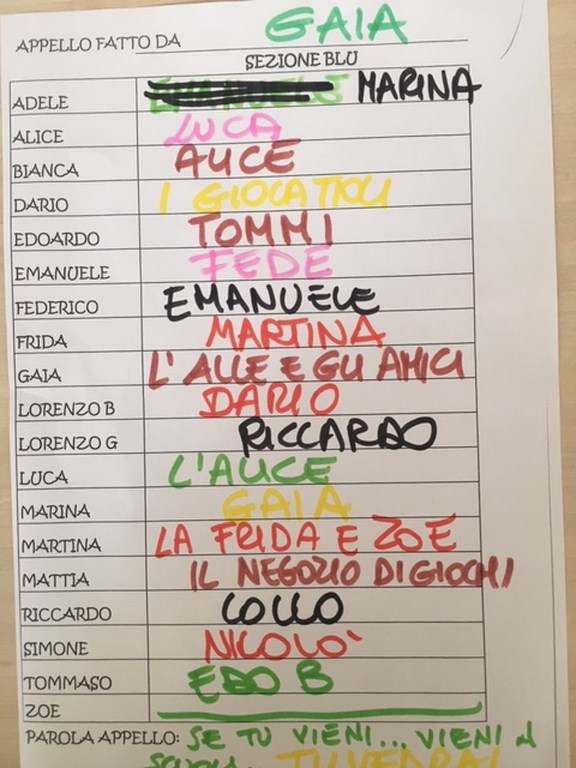 APPELLO FATTO DA GAIA
SEZIONE BLU
ADELE EMANUELE MARINA
ALICE LUCA
BIANCA ALICE
DARIO I GIOCATTOLI
EDOARDO TOMMI
EMANUELE FEDE
FEDERICO EMANUELE
FRIDA MARTINA
GAIA L'ALLE E GLI AMICI
LORENZO B DARIO
LORENZO G RICCARDO
LUCA L'ALICE
MARINA GAIA
MARTINA LA FRIDA E ZOE
MATTIA IL NEGOZIO DI GIOCHI
RICCARDO LOLLO
SIMONE NICOLO'
TOMMASO EDO B
ZOE
PAROLA APPELLO: SE TU VIENI... VIENI A
SCUOLA... TU VEDRAI